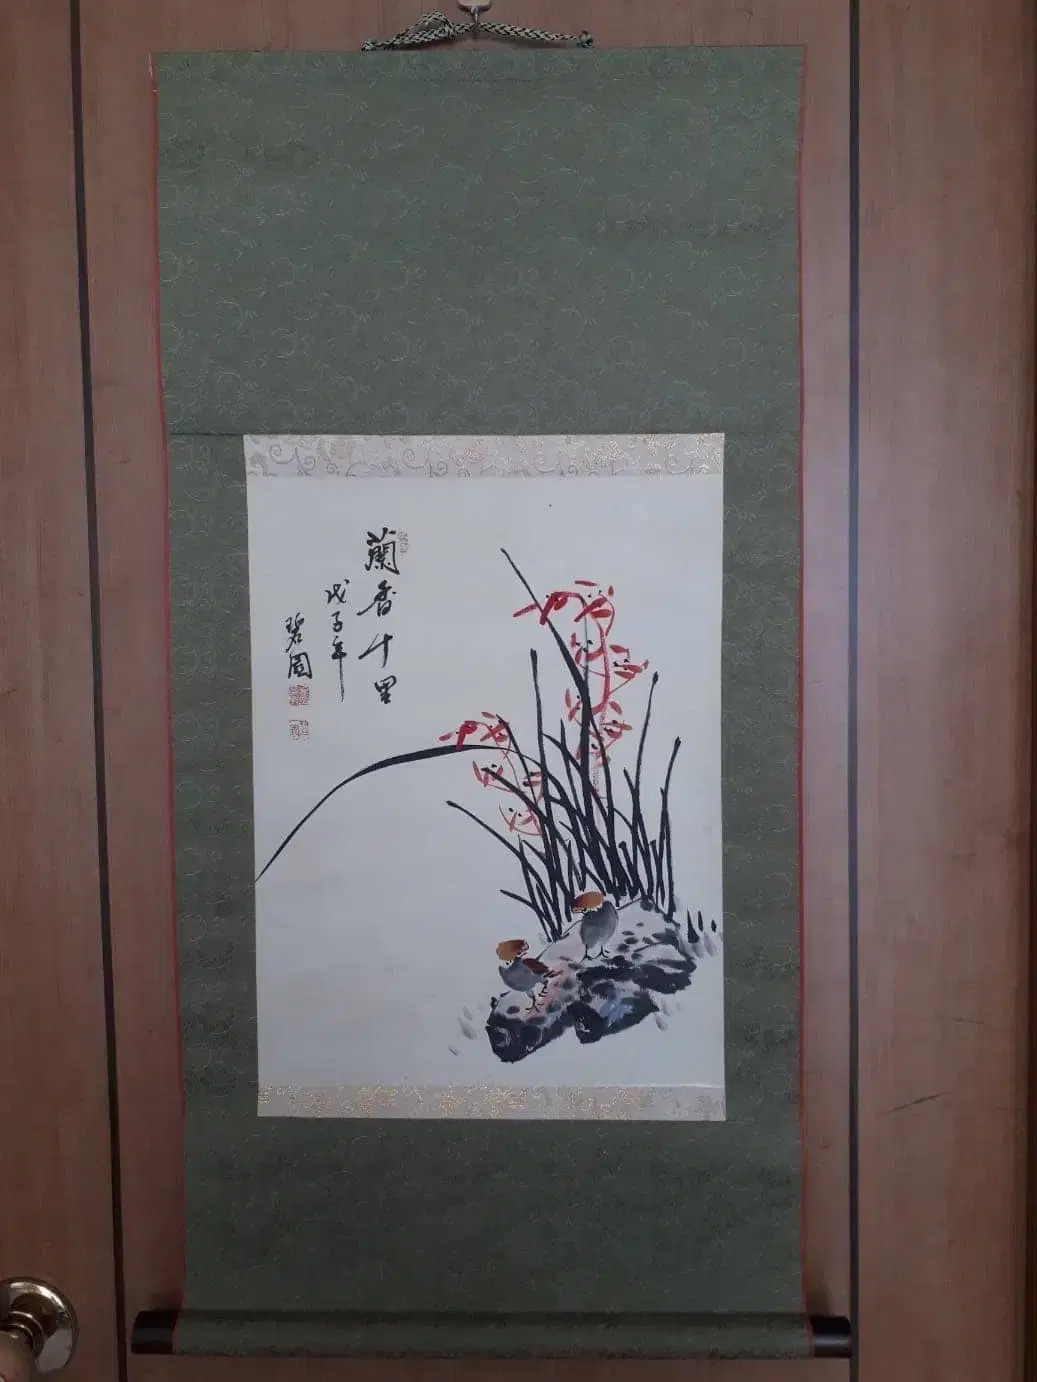 蘭香千里
戊子年
碧園